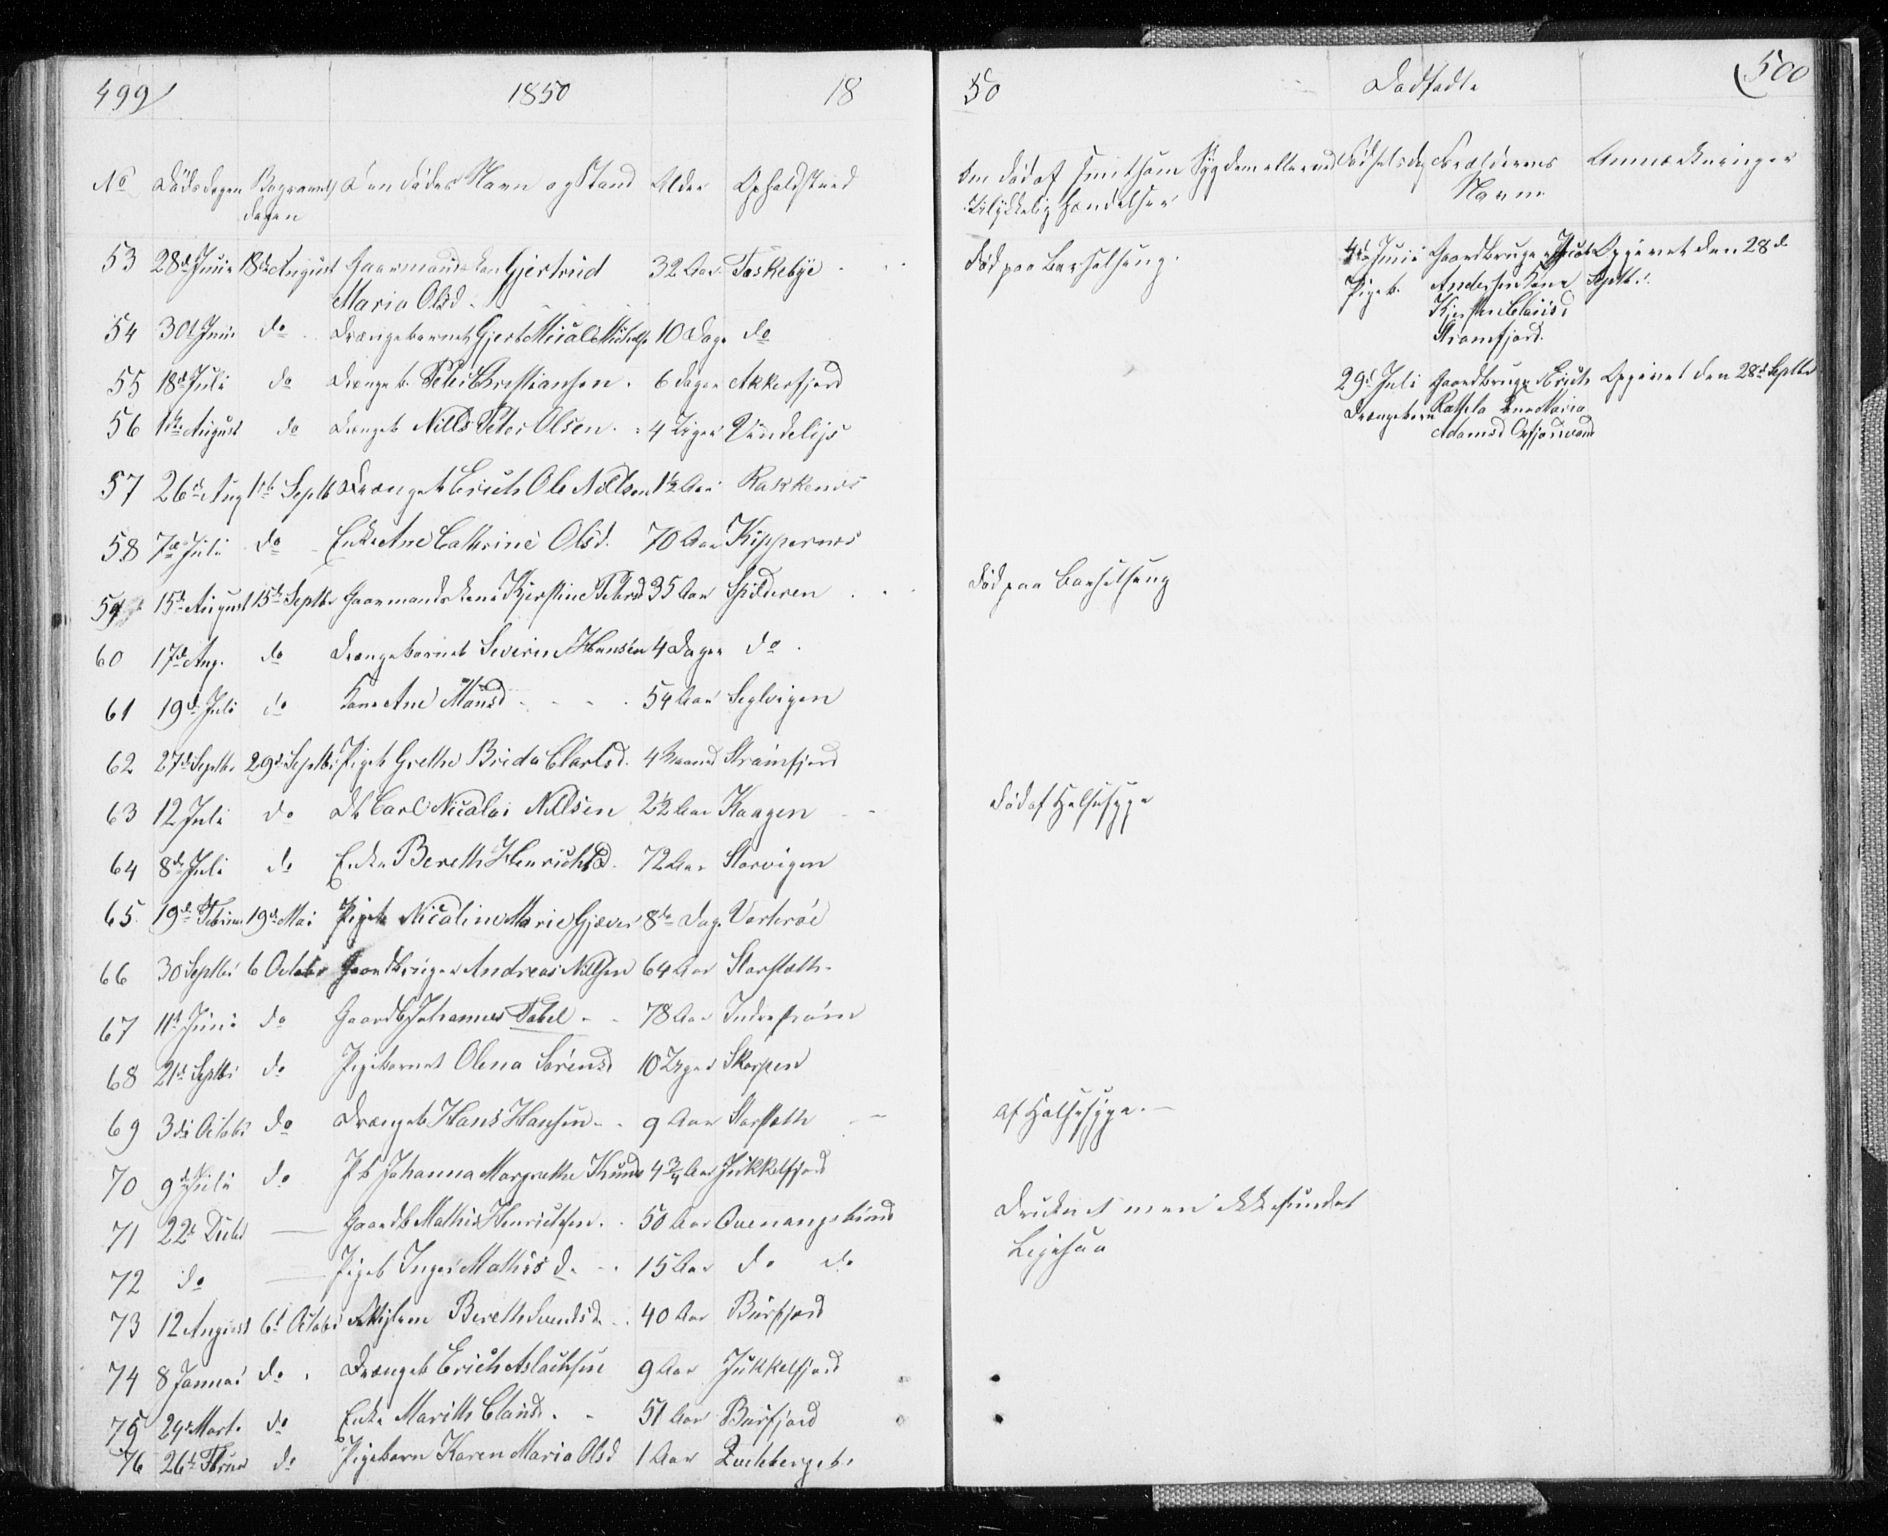 499
1850
18
No Dödsdagen Begravels dagen Den Dödes Navn og Stand Alder Opholdsted
53 28de Junii 18de August Gaarmands Kone Gjertrud 32 Aar Taskebye
Maria Olsd.
54 30t Junii do Drængebarnet Gjert Micalo 10 Dage do
55 18d Juli do Drængeb. Peter Christiansen 6 dager Akkerfjord
56 1te August do Drængeb Nills Peter Olsen 4 Uger
57 26de Aug 1te Septb Drængeb Erich Ole Nillsen 1½ Aar Rakkenes
58 7de Juli do Enke Ane Cathrine Olsd. 70 Aar Kippernes
59 15de August 15de Septbr Gaarmands Kone Kjerstine Petersd 35 Aar Spilderen
60 17de Aug. do Drængebarnet Severin Hansen 4 Dager do
61 19d Juli do Kone Ane Mansd 54 Aar Seglvigen
62 27d Septbr 29d Septbr Pigeb Grethe Brida Clarsd. 4 Maaned Stramfjord
63 12 Juli do Db Carl Nicolai Nillsen 2½ Aar Kaagen
64 8de Juli do Enke Bereth Henrichsd. 72 Aar Storvigen
65. 19de Februar 19d Mai Pigeb Nicoline Marie Gjæver 8te Dag Vorterøe
66 30 Septbr 6 October Gaardbruger Andreas Nillsen 64 Aar Storsleth
67 11d Juni do Gaardb Johannes Pabel 78 Aar Indrestrøm
68 21d Septbr do Pigebarnet Olena Sörensd 10 Uger Skorpen
69 3die Octobr do Drængeb Hans Hansen 9 Aar Storsleth
70 9d Juli do Pb Johanna Margrethe Knuds 4¾ Aar Jukkelfjord
71 22d Decbr — Gaardb Mathis Henrichsen 50 Aar Qvenangsbund
72 do — Pigeb Inger Mathis d. 15 Aar do do
73 12 August 6t Octobr Bereth Svends d. 40 Aar Burfjord
74 8 Januar do Drængeb Erich Aslachsen 9 Aar Jukkelfjord
75 29 Marts do Enke Marith Clausd. 51 Aar Burfjord
76 26d Februar do Pigebarn Karen Maria Olsd 1 Aar
50
Dödfödte
500
Om död af smitsom Sygdom eller ved Ulykkelig Hændelser Födselsdag Forældrenes Navn Anmærkninger
död paa Barselseng.
4de Junii Gaardbruger Jacob Opgivet den 28de
Pigeb. Andersen Kone Septbr.
Kirsten Clausd
Stramfjord.
29d Juli Gaardbruger Erich Opgivet den 28d Septbr
Drængebarn Kone Maria
Adamsd
död paa Barselseng
död af Halssyge
af Halssyge. —
Druknet men ikke fundet
Ligesaa